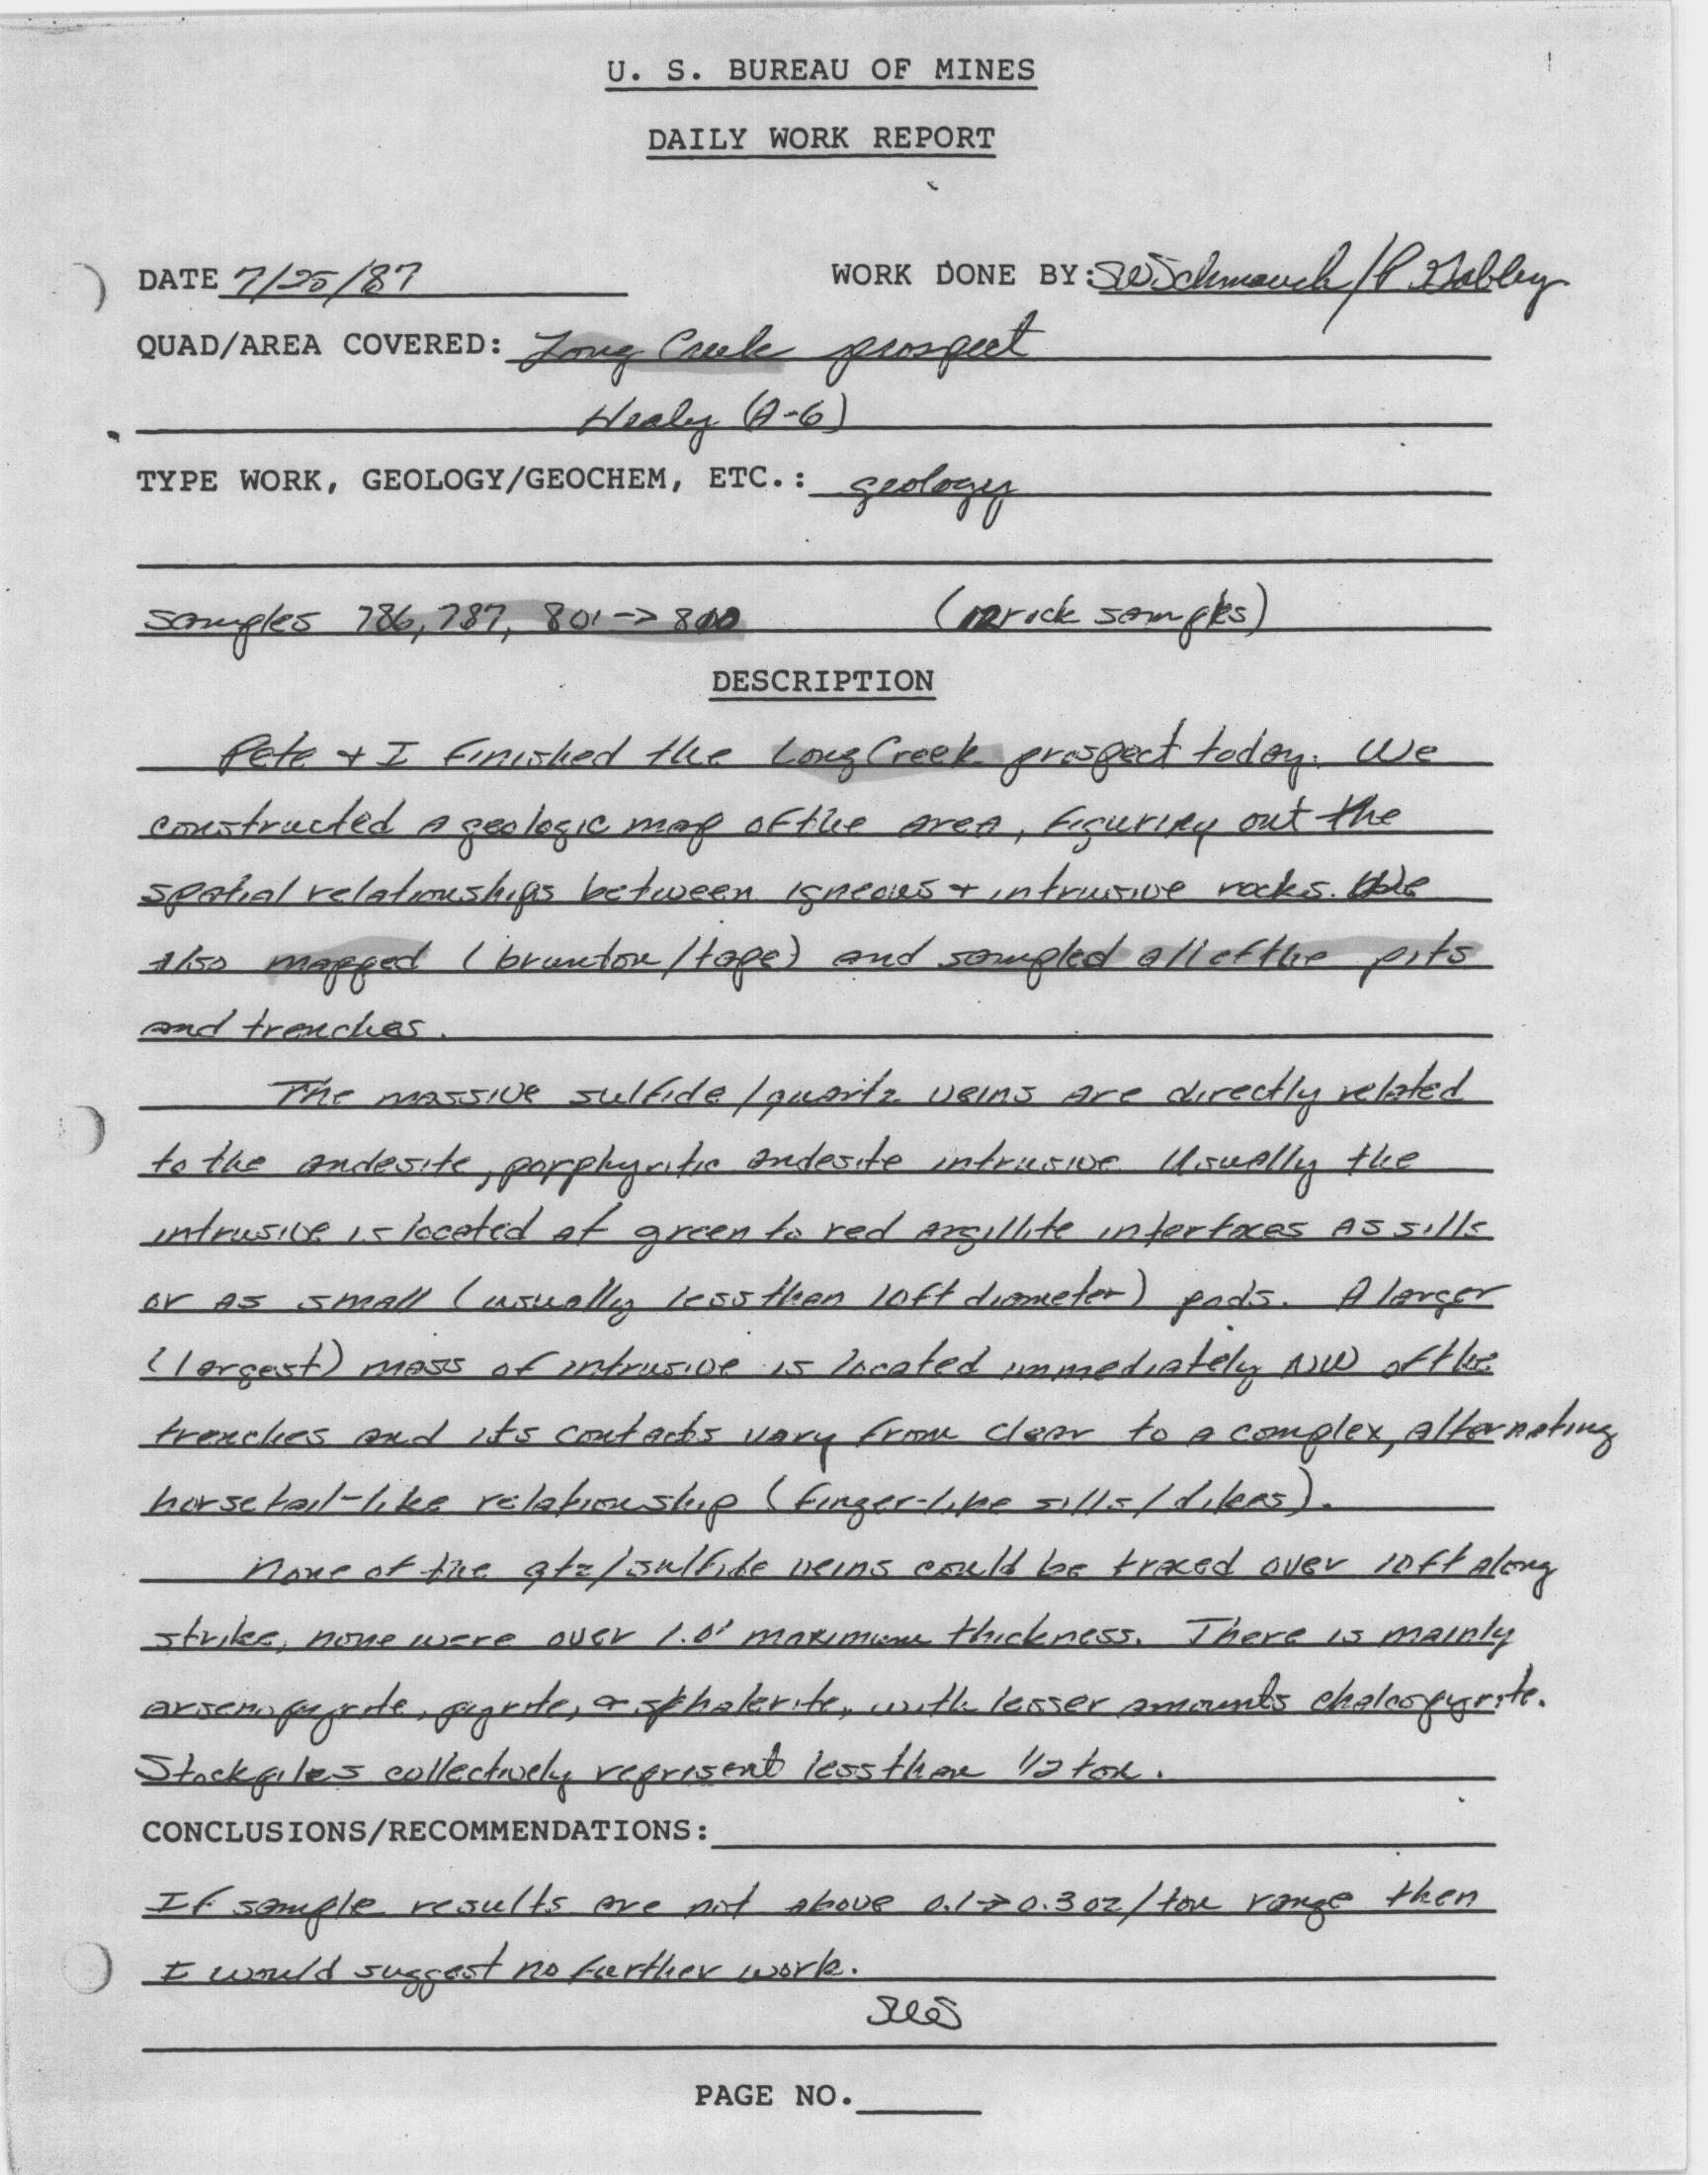 U. S. BUREAU OF MINES
DAILY WORK REPORT
DATE 7/25/87 WORK DONE BY: SWSchmauch/P
QUAD/AREA COVERED: Long Creek prospect
Healy (A-6)
TYPE WORK, GEOLOGY/GEOCHEM, ETC.: geology
samples 786, 787, 801 -> 810 (12 rock samples)
DESCRIPTION
Pete + I finished the Long Creek prospect today. We
constructed a geologic map of the area, figuring out the
spatial relationships between igneous + intrusive rocks. We
also mapped (brunton/tape) and sampled all of the pits
and trenches.
The massive sulfide/quartz veins are directly related
to the andesite, porphyritic andesite intrusive. Usually the
intrusive is located at green to red argillite interfaces as sills
or as small (usually less than 10ft diameter) pods. A larger
(largest) mass of intrusive is located immediately NW of the
trenches and its contacts vary from clear to a complex, alternating
horsetail-like relationship (finger-like sills/dikes).
None of the qtz/sulfide veins could be traced over 10ft along
strike, none were over 1.0' maximum thickness. There is mainly
arsenopyrite, pyrite, + sphalerite, with lesser amounts chalcopyrite.
Stockpiles collectively represent less than 1/2 ton.
CONCLUSIONS/RECOMMENDATIONS:
If sample results are not above 0.1->0.3 oz/ton range then
I would suggest no further work.
SWS
PAGE NO.